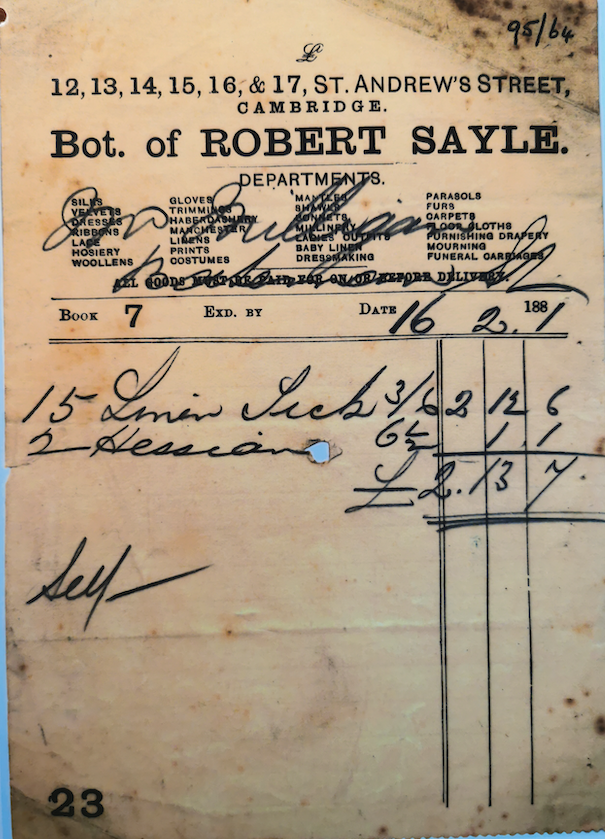 95/64
£
12, 13, 14, 15, 16, & 17, ST. ANDREW'S STREET,
CAMBRIDGE.
Bot. of ROBERT SAYLE.
DEPARTMENTS.
SILKS GLOVES MANTLES PARASOLS
VELVETS TRIMMINGS SHAWLS FURS
DRESSES HABERDASHERY BONNETS CARPETS
RIBBONS MANCHESTER MILLINERY FLOOR CLOTHS
LACE LINENS LADIES OUTFITS FURNISHING DRAPERY
HOSIERY PRINTS BABY LINEN MOURNING
WOOLLENS COSTUMES DRESSMAKING FUNERAL CARRIAGES
ALL GOODS MUST BE PAID FOR ON OR BEFORE DELIVERY.
BOOK 7 EXD. BY DATE 16 2. 1881
15 Linen Tick 3/6 2 12 6
2 Hessian 6½ 1.1
£2.13 7
Self
23